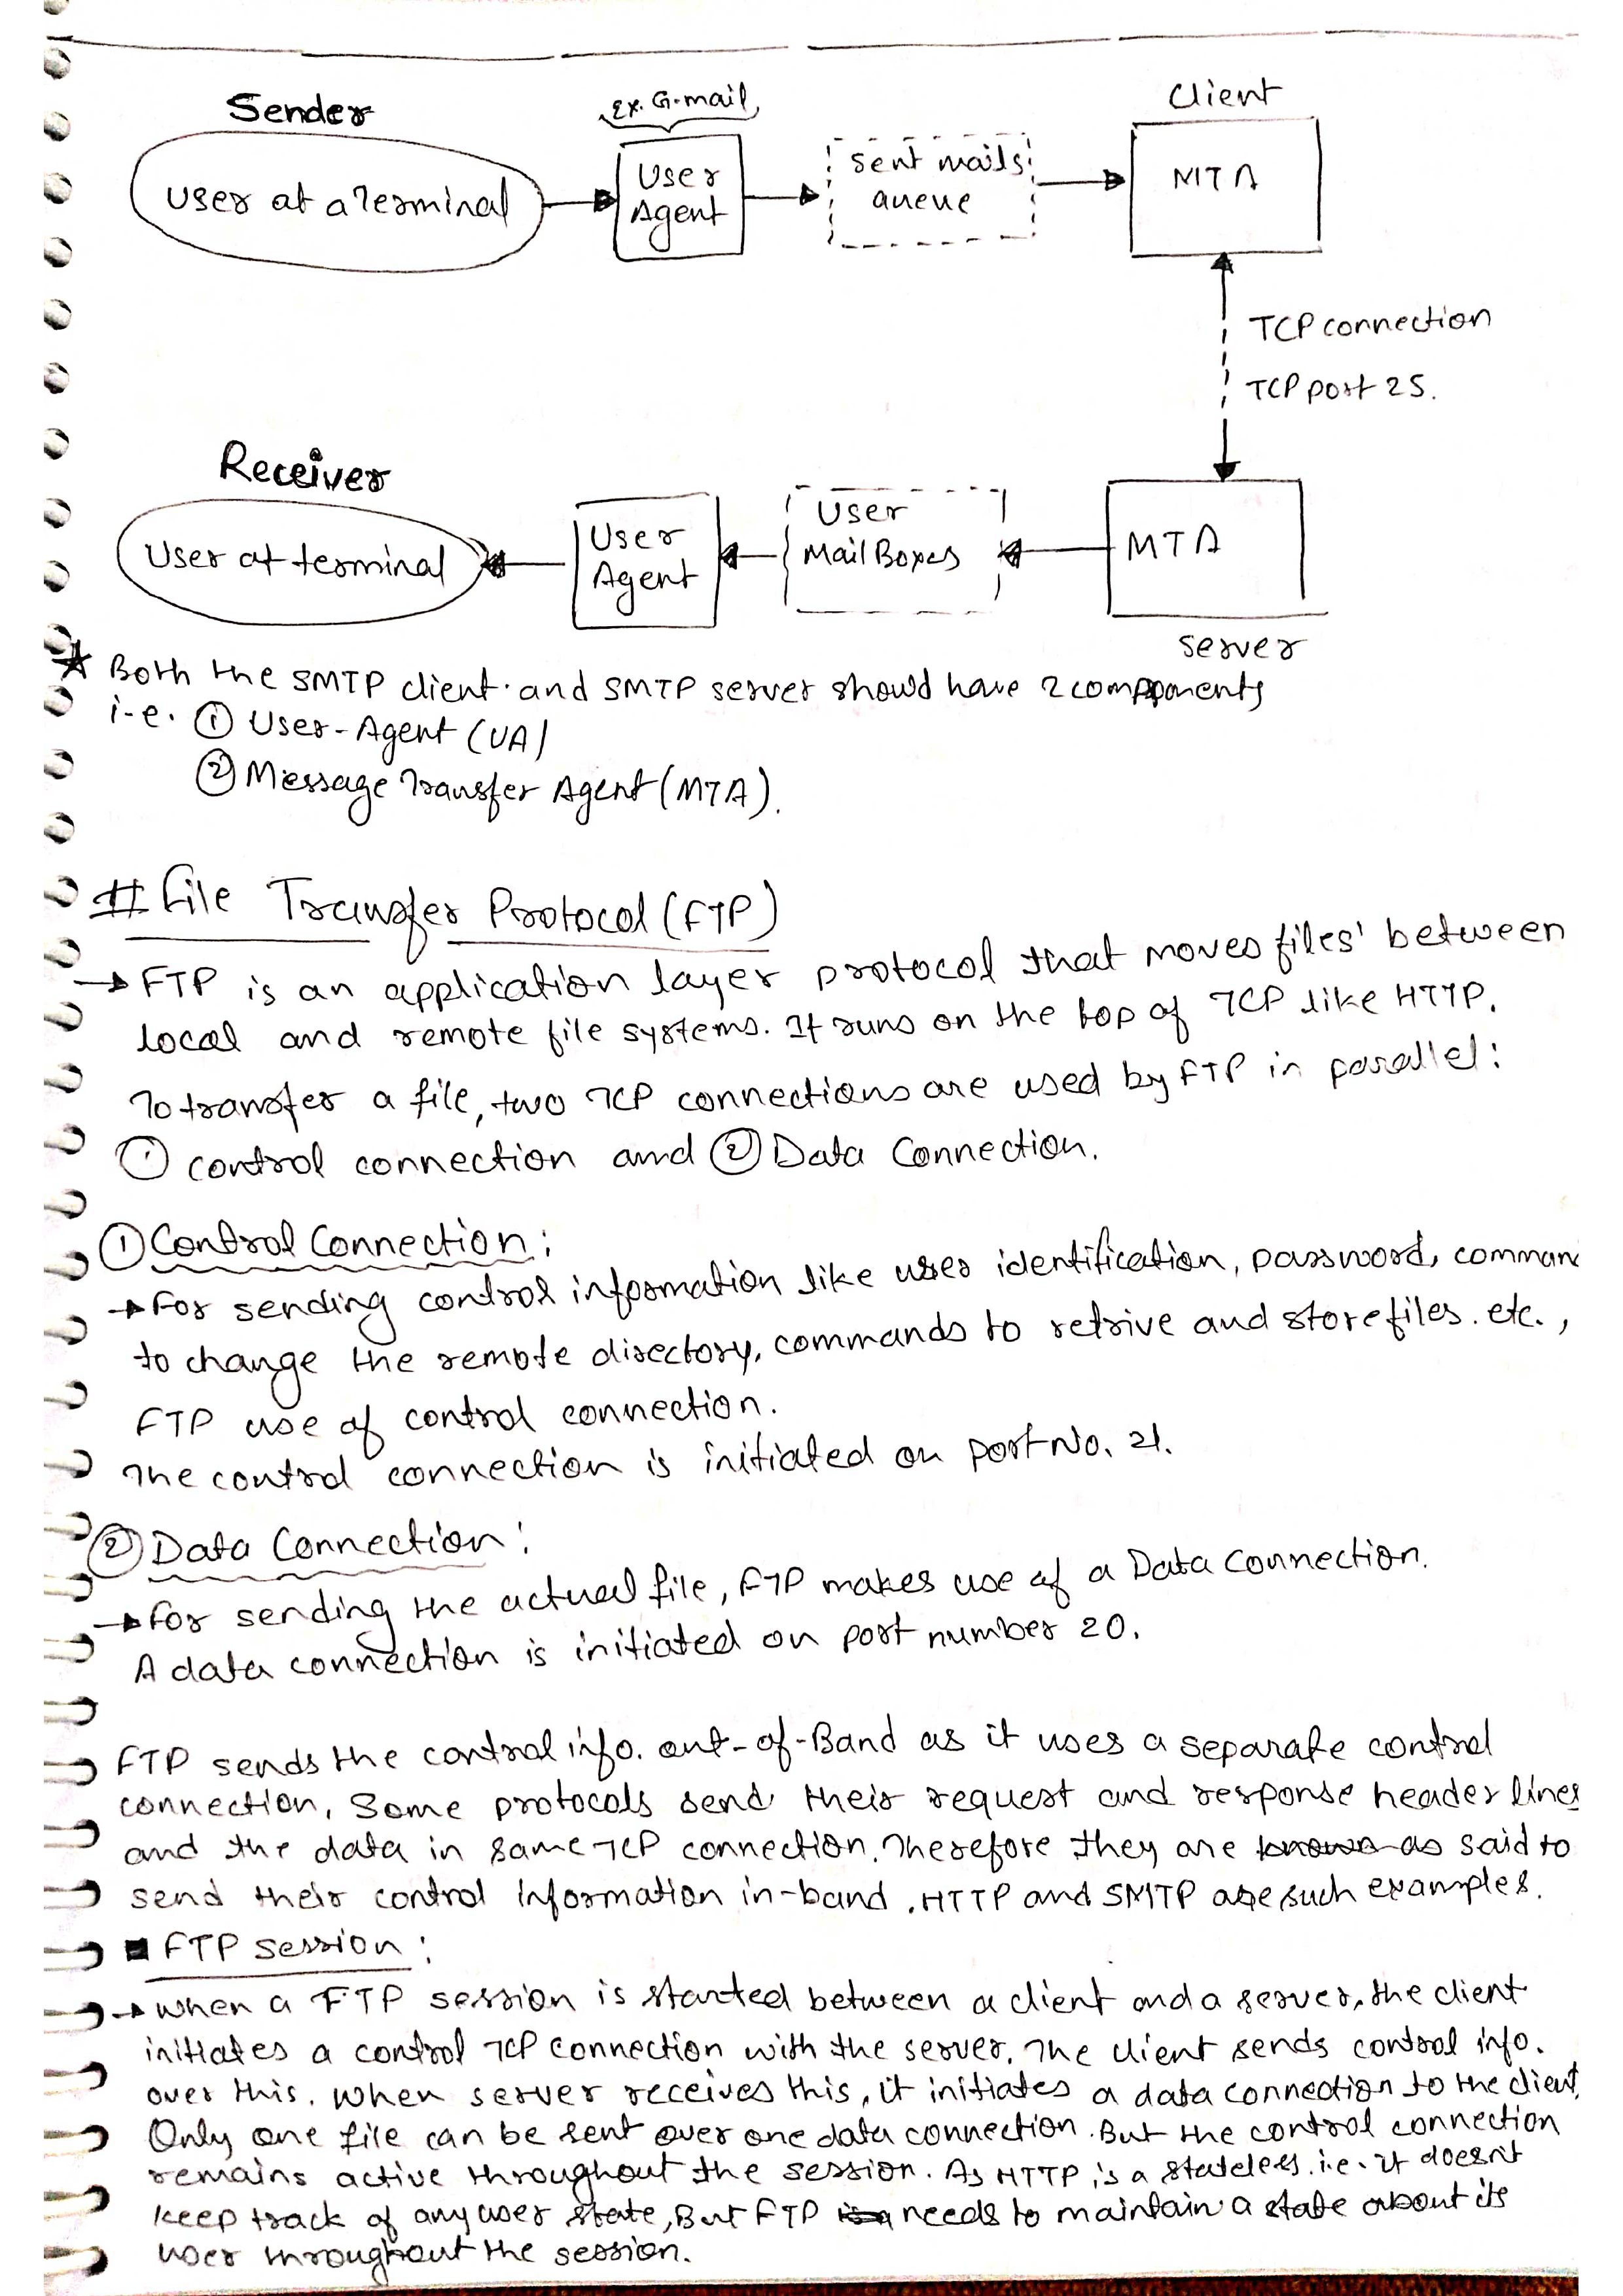 Sender
Ex. G-mail
Client
User at a Terminal
User
Agent
sent mails
queue
MTA
TCP connection
TCP port 25.
Receiver
User at terminal
User
Agent
User
MailBoxes
MTA
server
★ Both the SMTP client and SMTP server should have 2 components
i-e. ① User-Agent (UA)
② Message Transfer Agent (MTA).
# File Transfer Protocol (FTP)
→ FTP is an application layer protocol that moves files' between
local and remote file systems. It runs on the top of TCP like HTTP.
To transfer a file, two TCP connections are used by FTP in parallel:
① control connection and ② Data Connection.
① Control Connection:
→ For sending control information like user identification, password, comman
to change the remote directory, commands to retrive and store files. etc.,
FTP use of control connection.
The control connection is initiated on port No. 21.
② Data Connection:
→ For sending the actual file, FTP makes use of a Data connection.
A data connection is initiated on port number 20.
FTP sends the control info. out-of-Band as it uses a separate control
connection, Some protocols send their request and response header lines
and the data in same TCP connection. Therefore they are known as said to
send their control information in-band. HTTP and SMTP are such examples.
■ FTP session:
→ when a FTP session is started between a client and a server, the client
initiates a control TCP connection with the server. The client sends control info.
over this. when server receives this, it initiates a data connection to the client.
Only one file can be sent over one data connection. But the control connection
remains active throughout the session. As HTTP is a stateless. i.e. it doesn't
keep track of any user state, But FTP needs to maintain a state about its
user throughout the session.